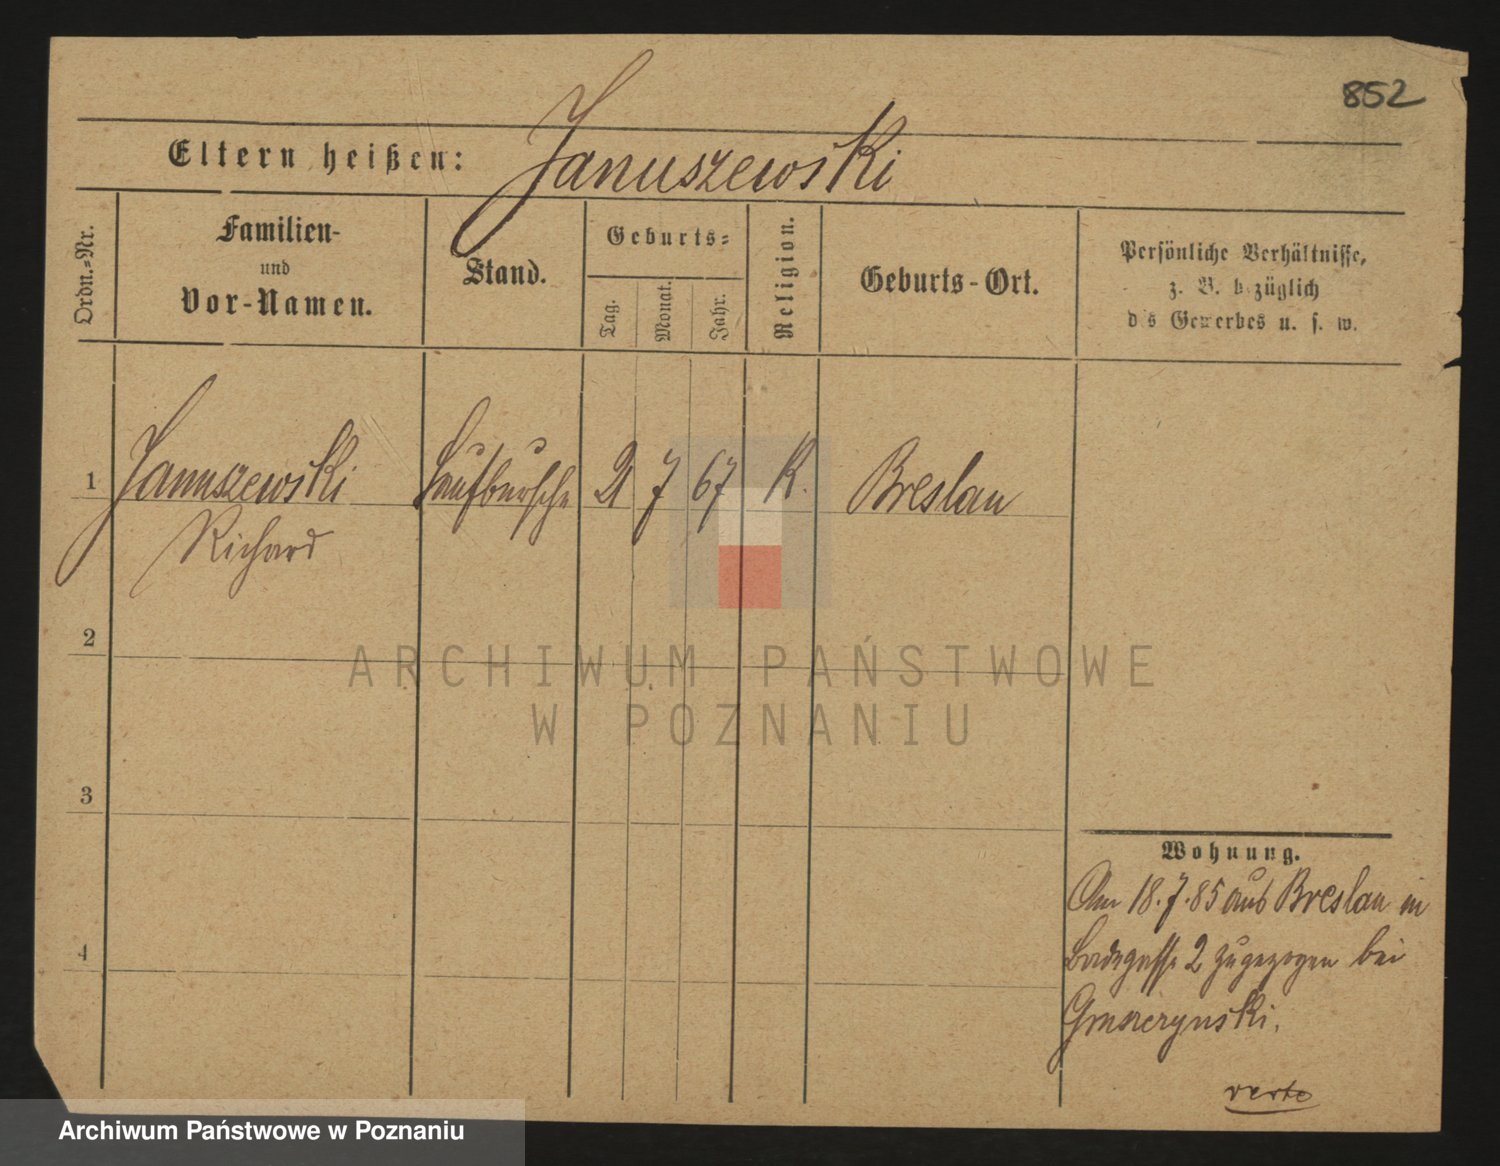 852
Eltern heißen: Januszewski
Ordn.-Nr.
Familien-
und
Vor-Namen.
Stand.
Geburts-
Tag.
Monat.
Jahr.
Religion.
Geburts-Ort.
Persönliche Verhältnisse,
z. B. bezüglich
des Gewerbes u. s. w.
1 Januszewski Laufbursche 21 7 67 K. Breslau
Richard
2
3
4
Wohnung.
Am 18.7.85 aus Breslau in
2 zugezogen bei
verte
ARCHIWUM PAŃSTWOWE
W POZNANIU
Archiwum Państwowe w Poznaniu